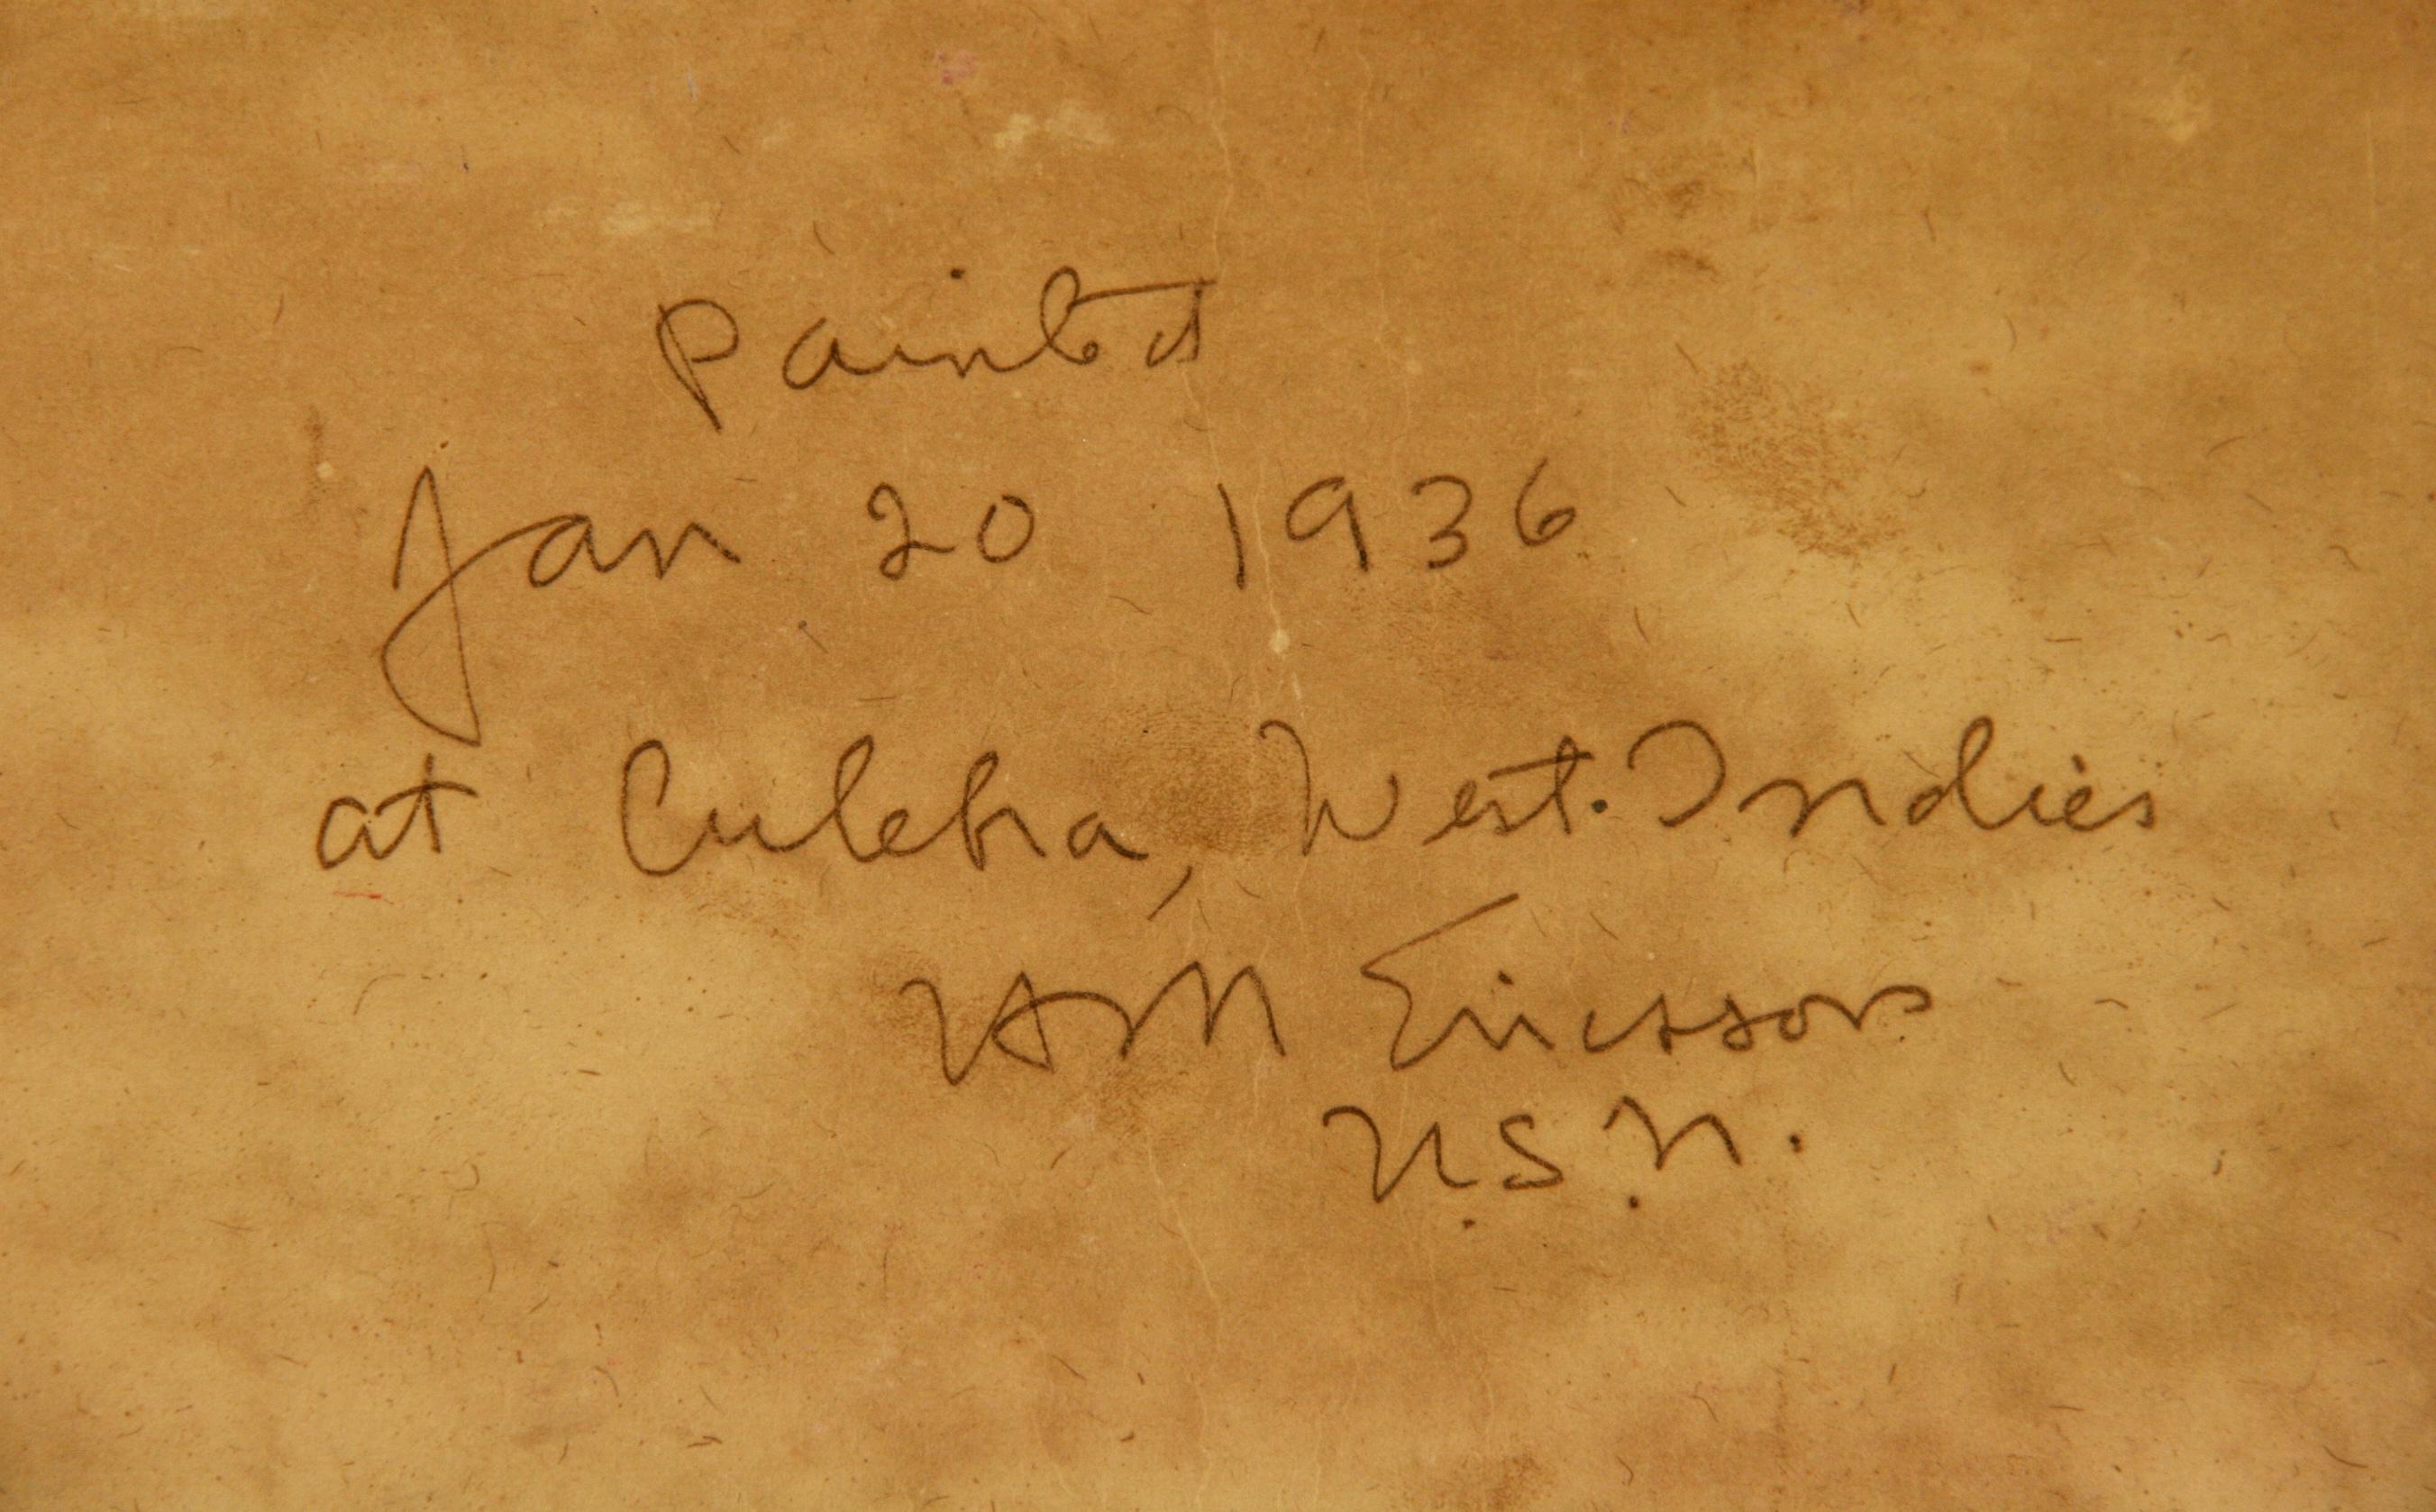 Painted
Jan 20 1936
at Culebra, West. Indies
HM Ericsson
U.S.N.